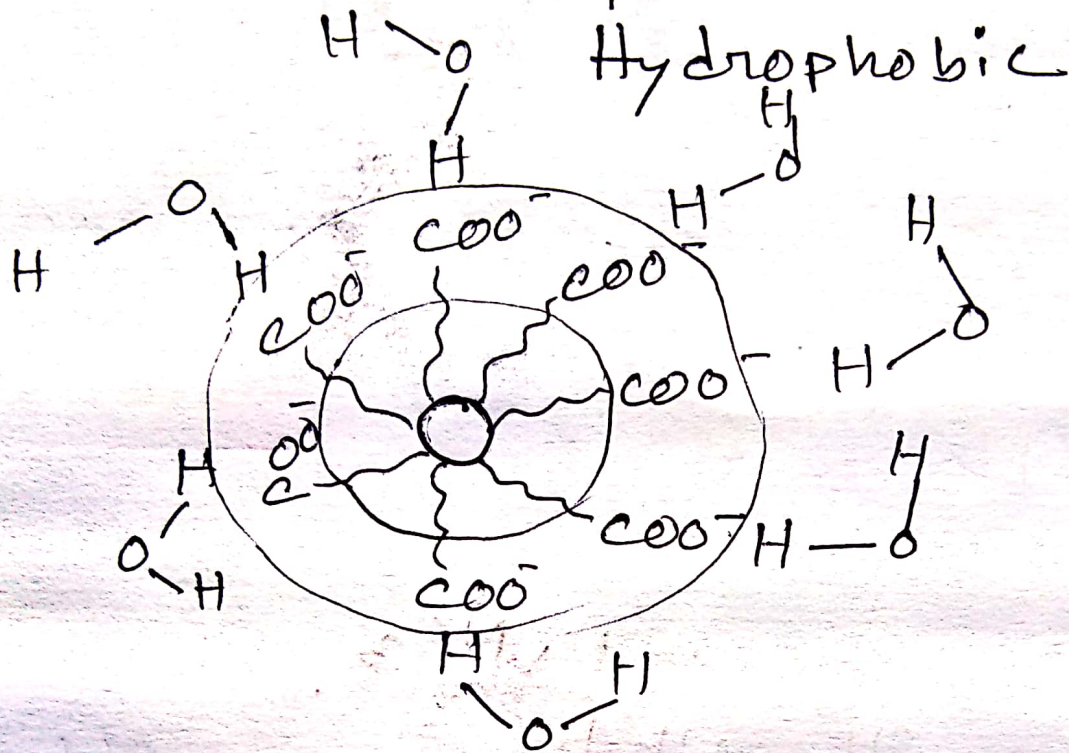 Hydrophobic
H O H
H O H
H O H
H O H
COO⁻
COO⁻
COO⁻
COO⁻
COO⁻
COO⁻
COO⁻
H O H
H O H
H O H